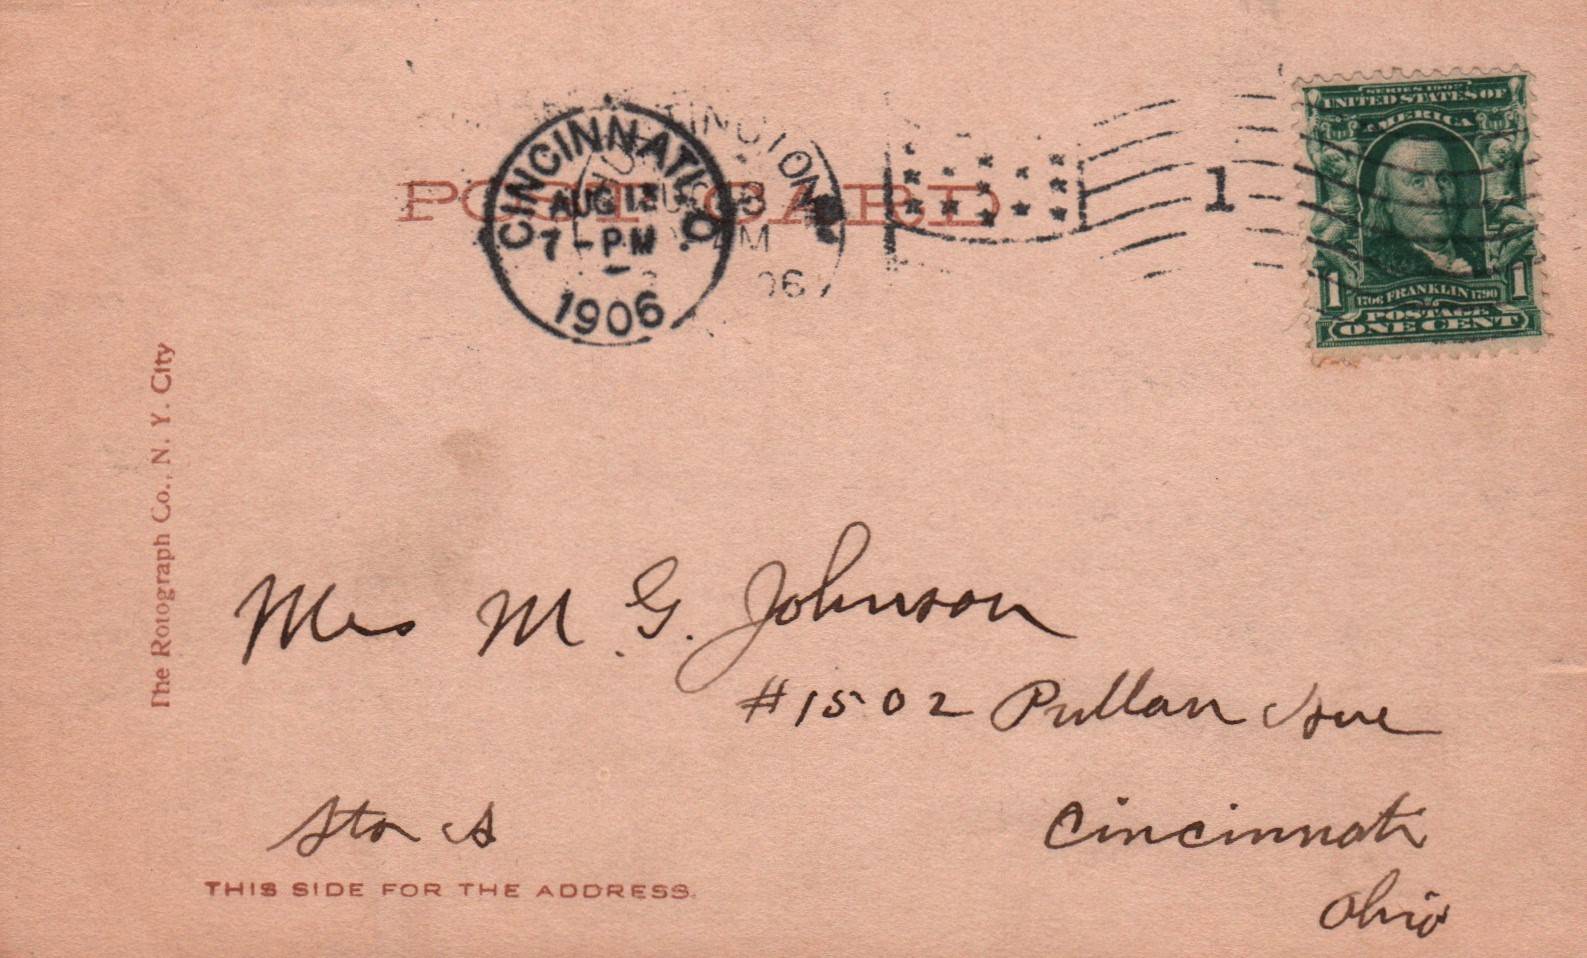 POST CARD
CINCINNATI, O.
AUG 13
7-PM
1906
1
SERIES 1902
UNITED STATES OF
AMERICA
1706 FRANKLIN 1790
1 1
POSTAGE
ONE CENT
The Rotograph Co., N. Y. City
Mrs M. G. Johnson
#1502 Pullan Ave
Sta A
Cincinnati
Ohio
THIS SIDE FOR THE ADDRESS.